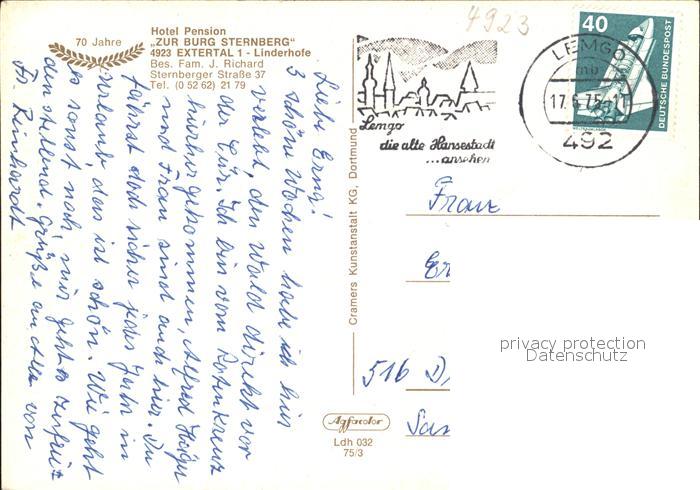 70 Jahre
Hotel Pension
„ZUR BURG STERNBERG“
4923 EXTERTAL 1 - Linderhofe
Bes. Fam. J. Richard
Sternberger Straße 37
Tel. (0 52 62) 21 79
4923
40
DEUTSCHE BUNDESPOST
LEMGO
mb
17.6.75-11
492
Lemgo
die alte Hansestadt
...ansehen
Liebe Erna!
3 schöne Wochen habe ich hier
verlebt, den Wald direkt vor
der Tür. Ich bin vom Rotenkreuz
hierher gekommen, Alfred
und Frau sind auch hier. Du
fährst doch sicher jedes Jahr in
Urlaub, das ist schön. Wie geht
es sonst noch, mir geht es zufrie-
denstellend. Grüße an Alle von
Fr. Reinhardt
Cramers Kunstanstalt KG, Dortmund
Franz
Er
516 D
San
privacy protection
Datenschutz
Agfacolor
Ldh 032
75/3